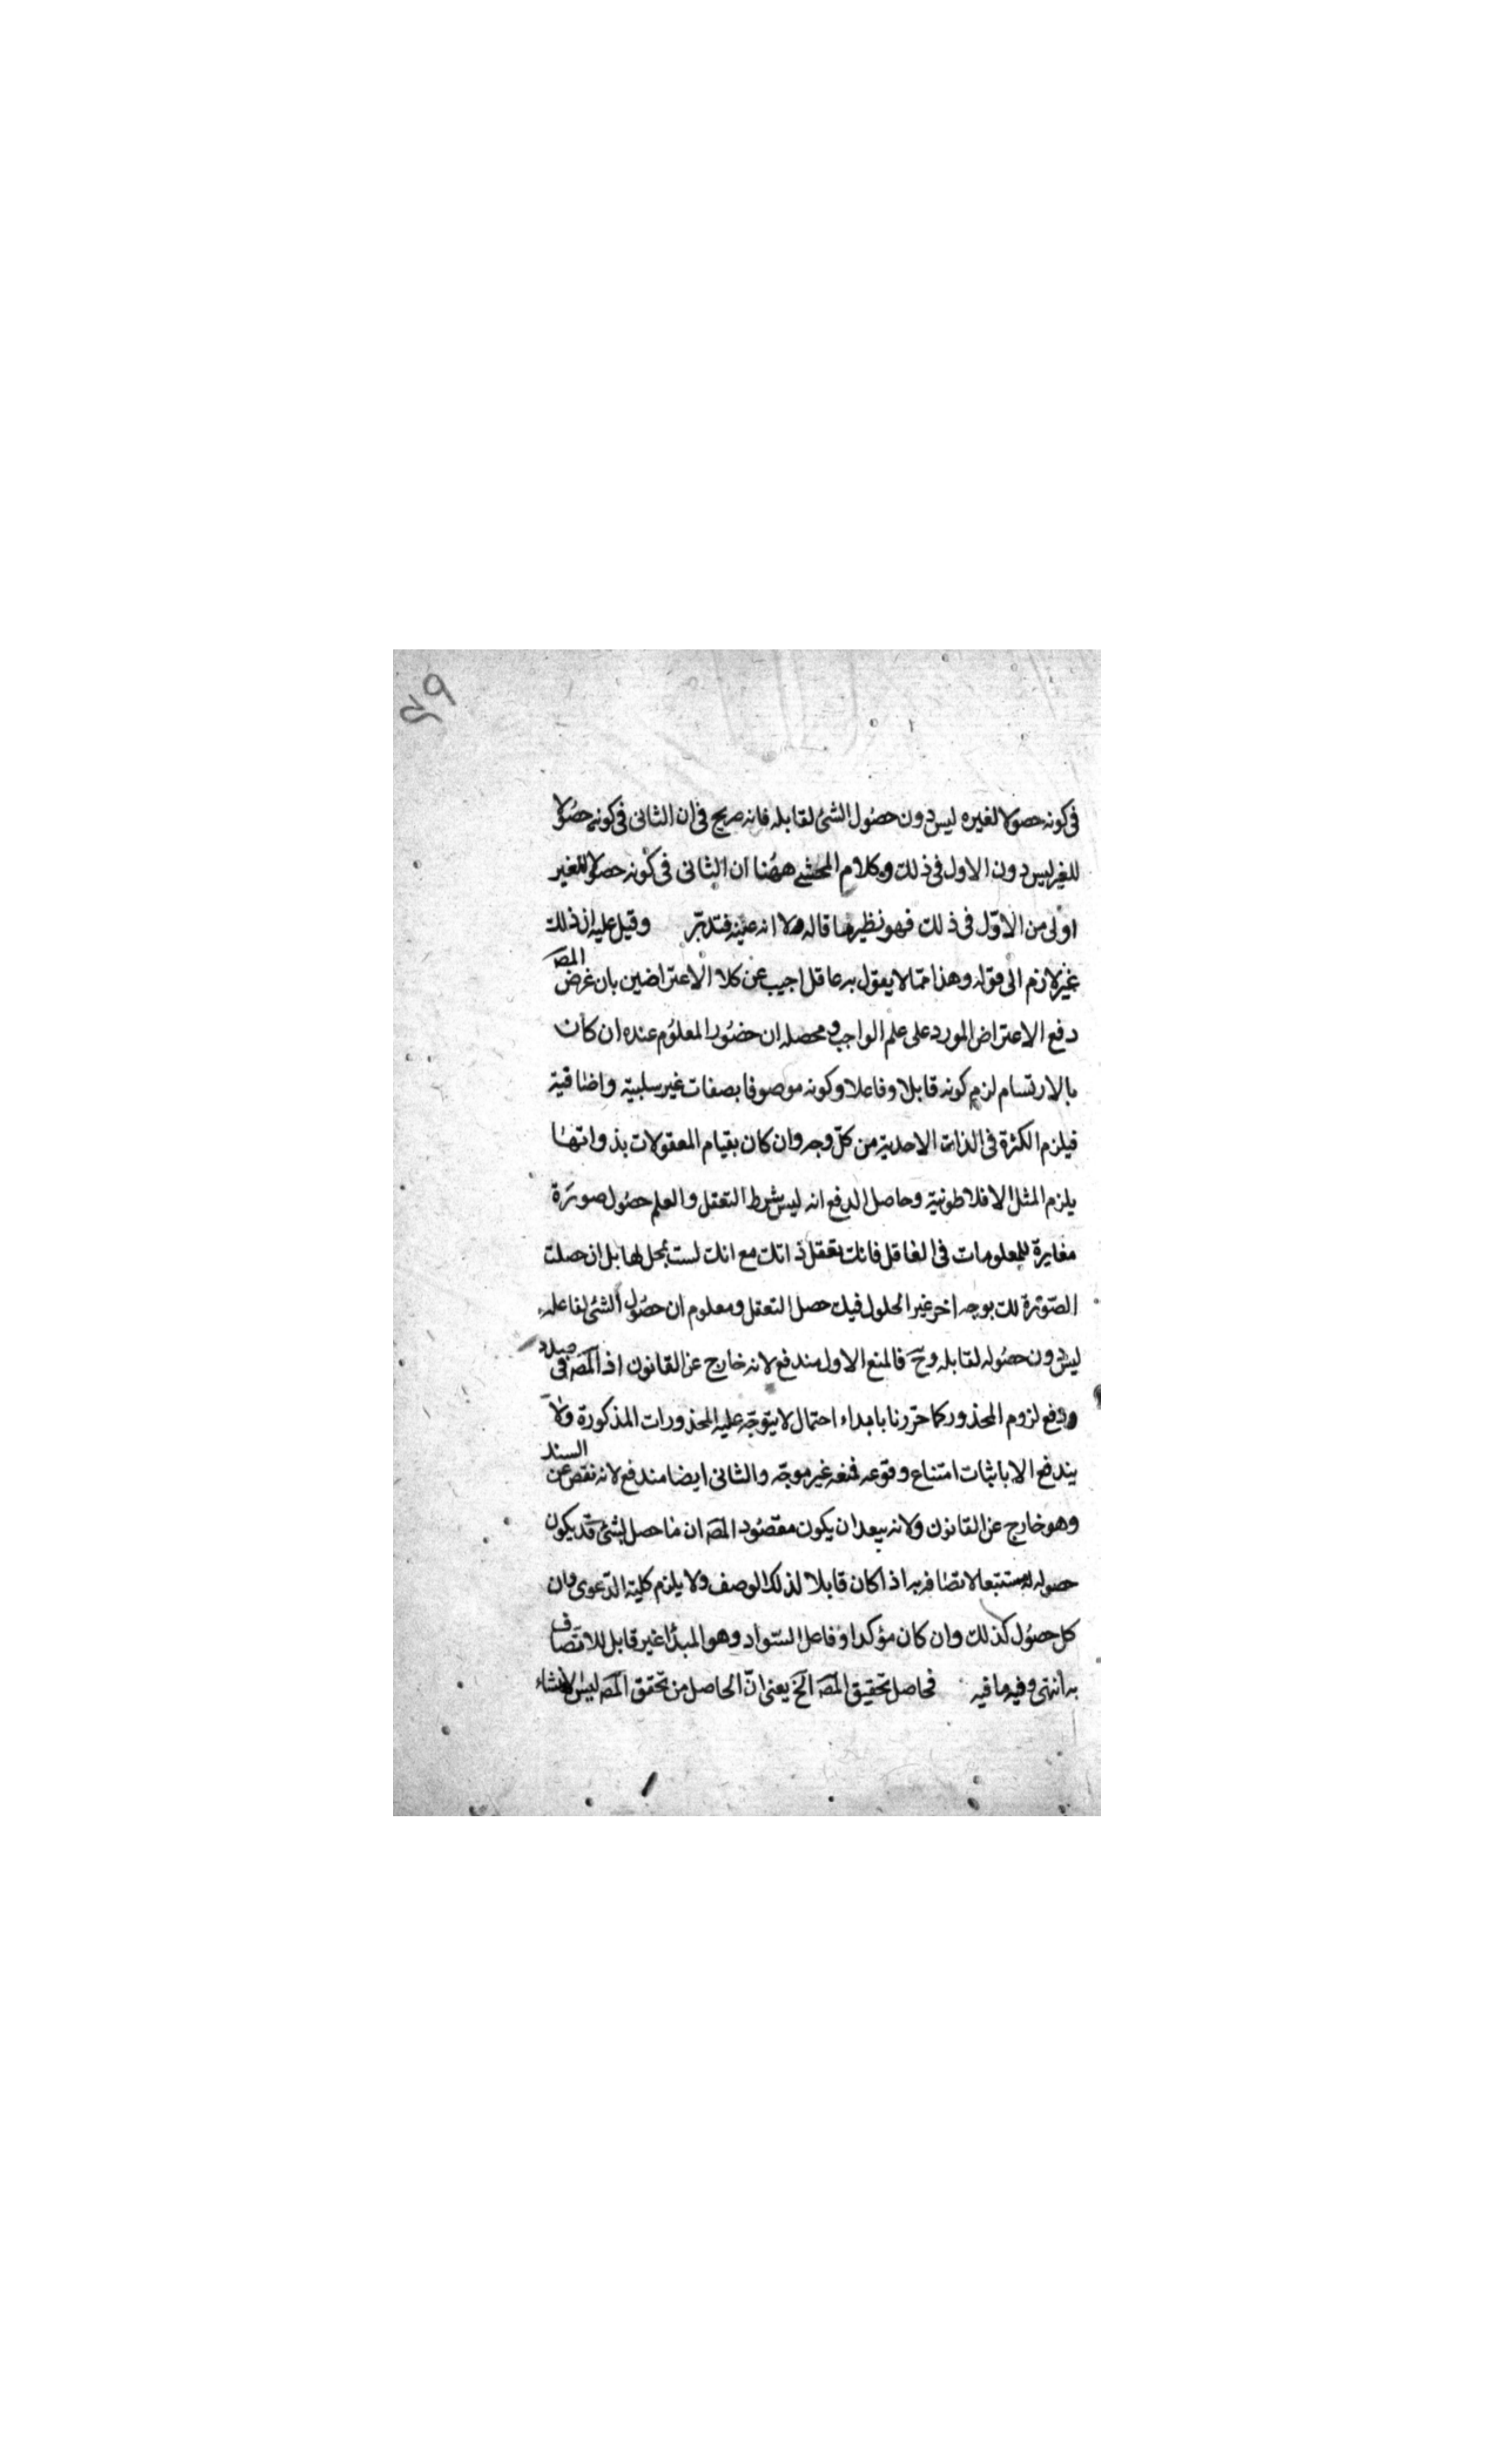 ٥٩
فى كونه حصولا لغيره ليس دون حصول الشئ لقابله فانه صريح فى ان الثانى فى كونه حصولا
للغير ليس دون الاول فى ذلك وكلام المحشى ههنا ان الثانى فى كونه حصولا للغير
اولى من الاوّل فى ذلك فهو نظير ما قاله لا انه عينه فتدبّر وقيل عليه ان ذلك
غير لازم الى قوله وهذا ممّا لا يقول به عاقل اجيب عن كلا الاعتراضين بان غرض المصـ
دفع الاعتراض المورد على علم الواجب ومحصله ان حضور المعلوم عنده ان كان
بالارتسام لزم كونه قابلا وفاعلا وكونه موصوفا بصفات غير سلبية واضافية
فيلزم الكثرة فى الذات الاحدية من كلّ وجه وان كان بقيام المعقولات بذواتها
يلزم المثل الافلاطونية وحاصل الدفع انه ليس شرط التعقل والعلم حصول صورة
مغايرة للمعلومات فى العاقل فانك تعقل ذاتك مع انك لست بمحل لها بل ان حصلت
الصّورة لك بوجه اخر غير الحلول فيك حصل التعقل ومعلوم ان حصول الشئ لفاعله
ليس دون حصوله لقابله وحـ فالمنع الاول مندفع لانه خارج عن القانون اذ المصـ فى صدد
دفع لزوم المحذور كما حرّرنا بابداء احتمال لا يتوجّه عليه المحذورات المذكورة ولا
يندفع الا باثبات امتناع وقوعه فمنعه غير موجّه والثانى ايضا مندفع لانه نقض عن السند
وهو خارج عن القانون ولانه يبعد ان يكون مقصود المصـ ان ما حصل لشئ قد يكون
حصوله له مستتبعا لاتصافه به اذا كان قابلا لذلك الوصف ولا يلزم كلية الدّعوى وان
كل حصول كذلك وان كان مؤكدا وفاعل السّواد وهو المبدأ غير قابل للاتصاف
به انتهى وفيه ما فيه فحاصل تحقيق المصـ الخ يعنى انّ الحاصل من تحقق المصـ ليس